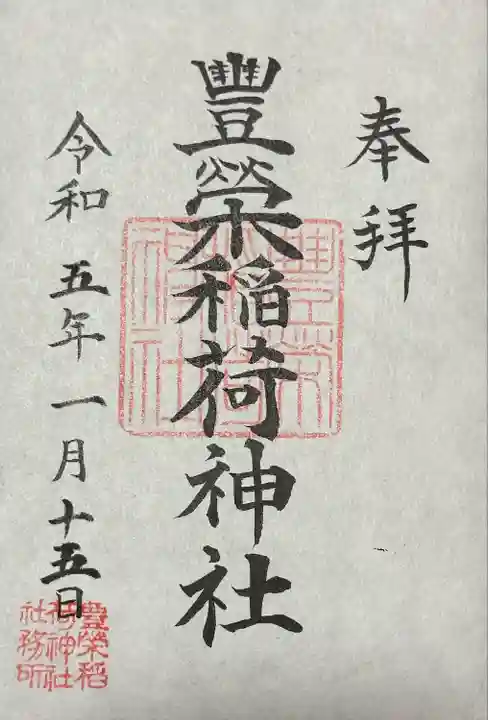 奉拝
豐榮稲荷神社
令和五年一月十五日
豊榮稲
荷神社
社務所